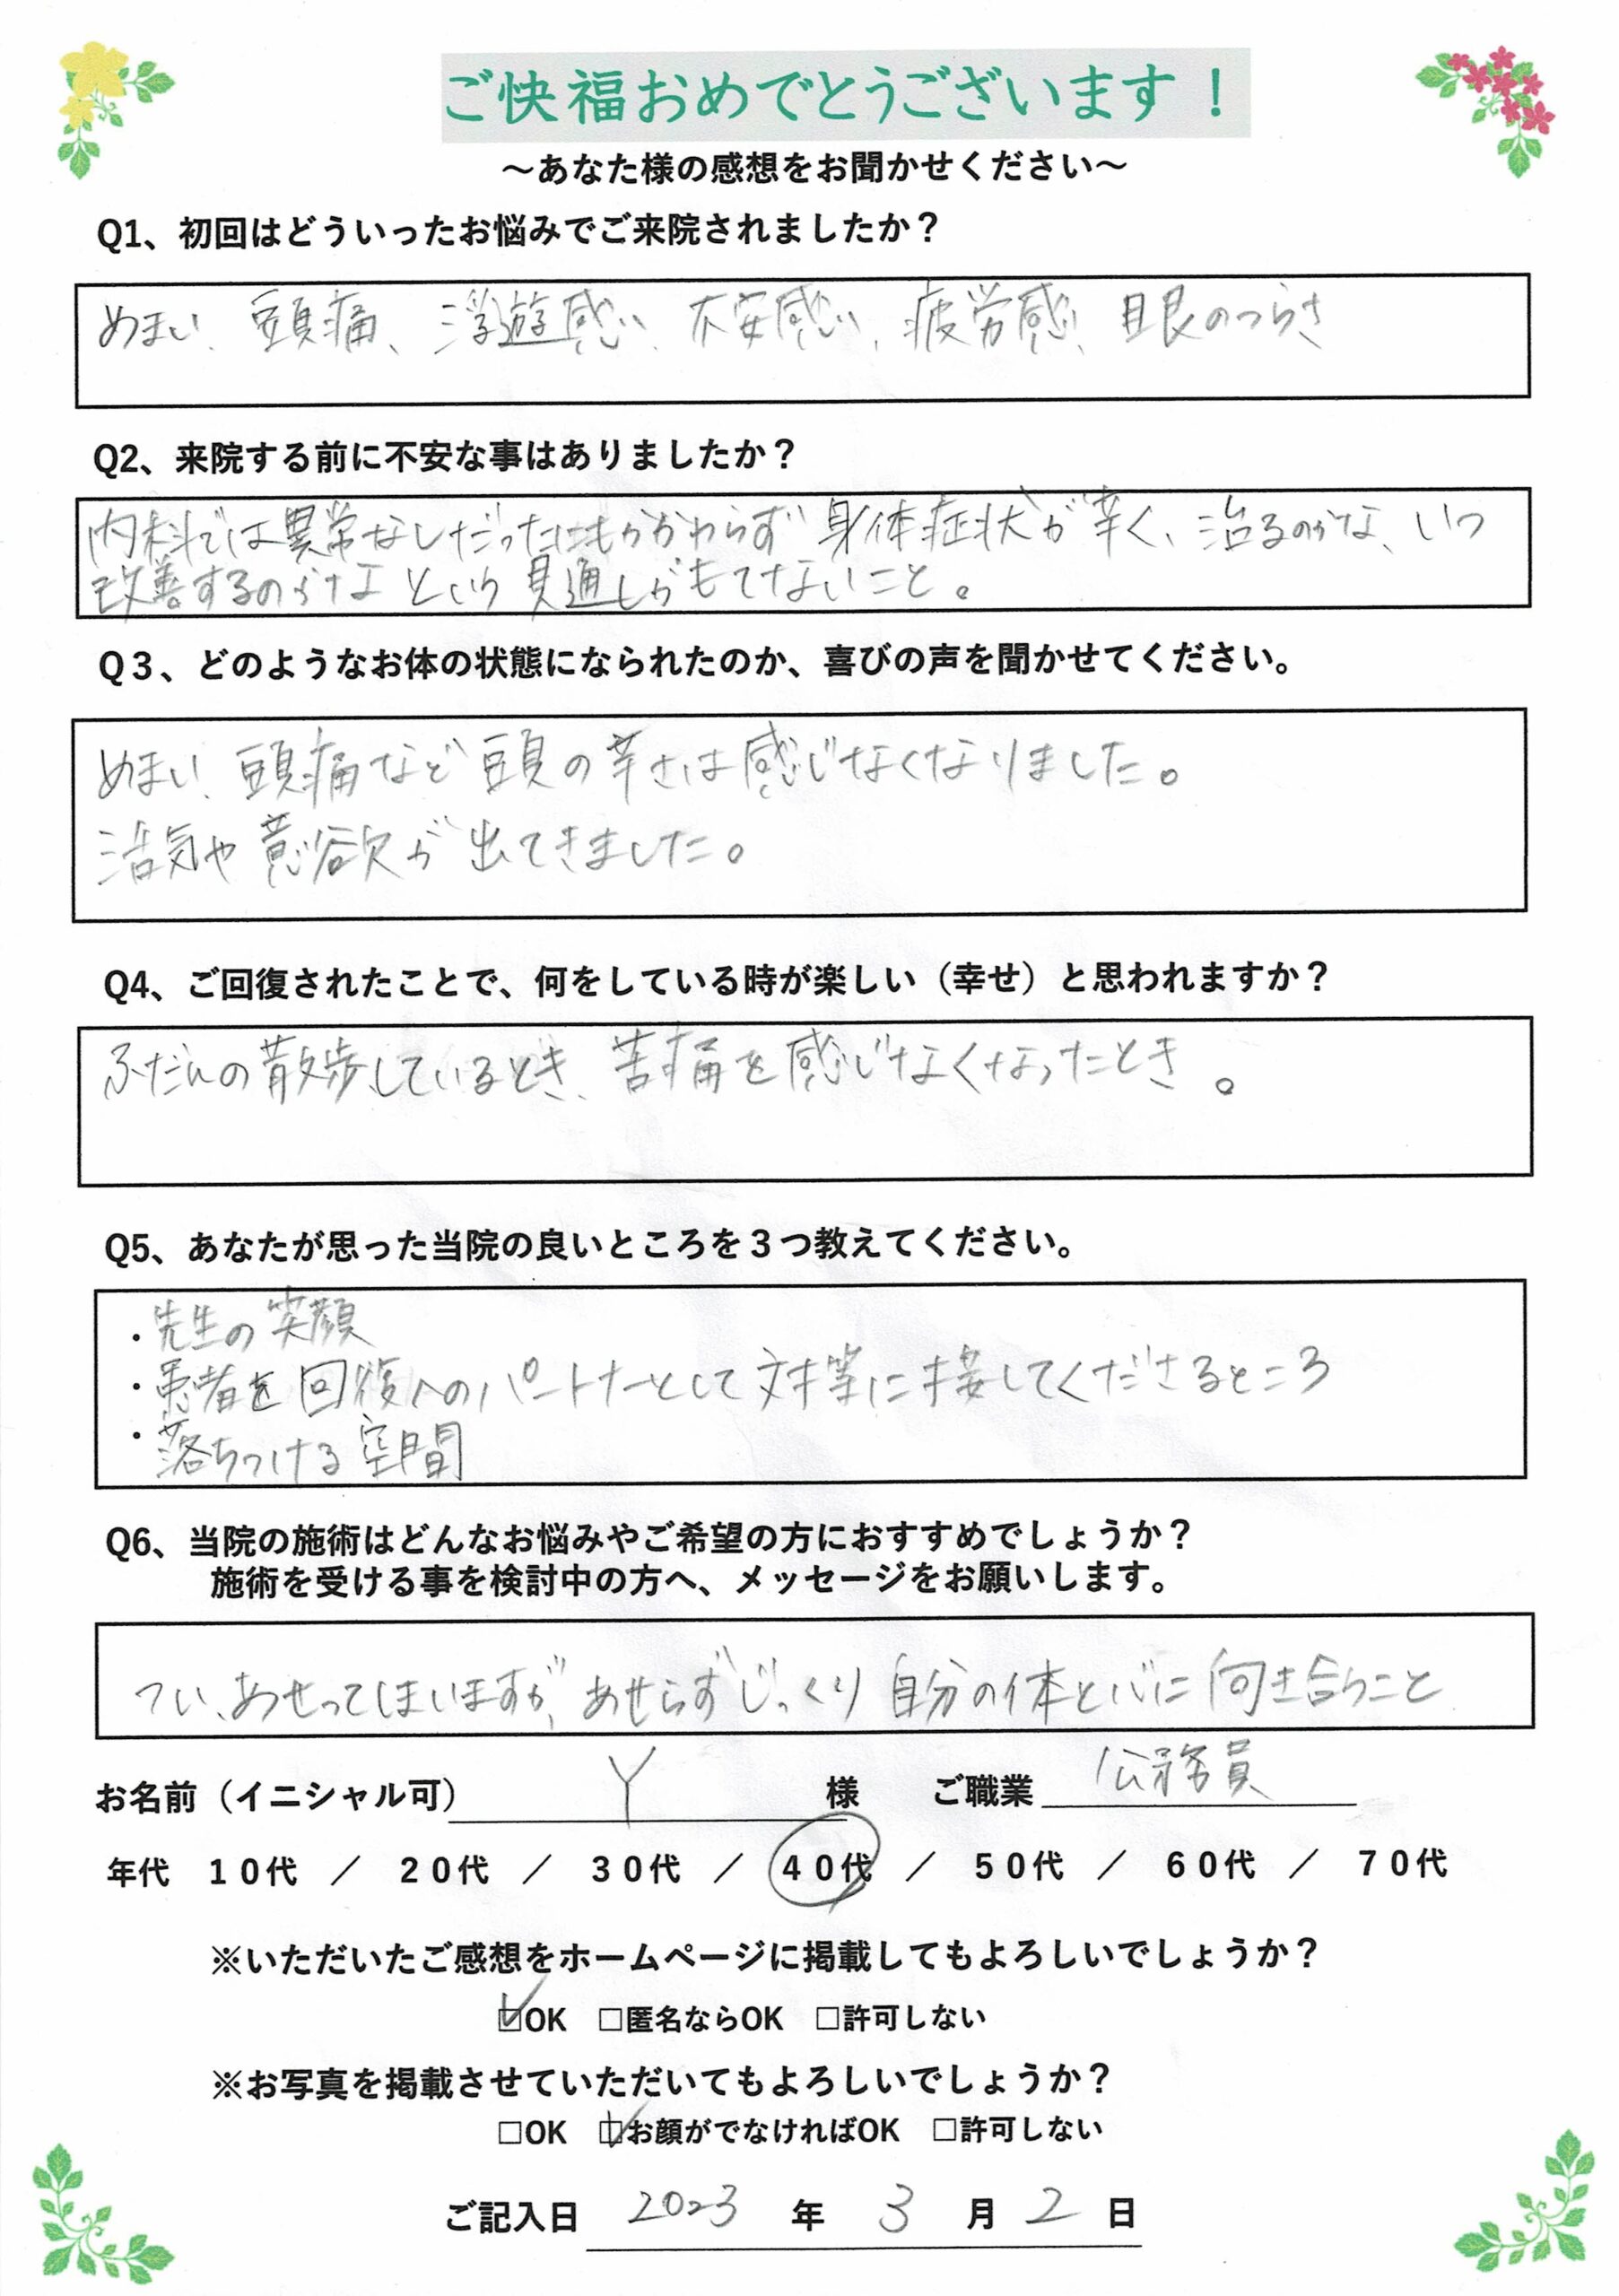 ご快福おめでとうございます！
～あなた様の感想をお聞かせください～
Q1、初回はどういったお悩みでご来院されましたか？
めまい、頭痛、浮遊感、不安感、疲労感、眼のつらさ
Q2、来院する前に不安な事はありましたか？
内科では異常なしだったにもかかわらず身体症状が辛く、治るのかな、いつ
改善するのかなという見通しがもてないこと。
Q３、どのようなお体の状態になられたのか、喜びの声を聞かせてください。
めまい、頭痛など頭の辛さは感じなくなりました。
活気や意欲が出てきました。
Q4、ご回復されたことで、何をしている時が楽しい（幸せ）と思われますか？
ふだんの散歩しているとき、苦痛を感じなくなったとき。
Q5、あなたが思った当院の良いところを３つ教えてください。
・先生の笑顔
・患者を回復へのパートナーとして対等に接してくださるところ
・落ちつける空間
Q6、当院の施術はどんなお悩みやご希望の方におすすめでしょうか？
施術を受ける事を検討中の方へ、メッセージをお願いします。
つい、あせってしまいますが、あせらずじっくり自分の体と心に向き合うこと
お名前（イニシャル可） Y 様 ご職業 公務員
年代 １０代 ／ ２０代 ／ ３０代 ／ ４０代 ／ ５０代 ／ ６０代 ／ ７０代
※いただいたご感想をホームページに掲載してもよろしいでしょうか？
☑OK □匿名ならOK □許可しない
※お写真を掲載させていただいてもよろしいでしょうか？
□OK ☑お顔がでなければOK □許可しない
ご記入日 2023 年 3 月 2 日